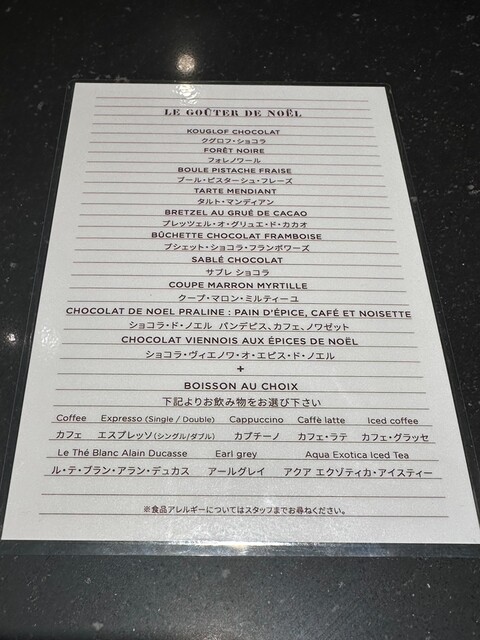 LE GOÛTER DE NOËL
KOUGLOF CHOCOLAT
クグロフ・ショコラ
FORÊT NOIRE
フォレノワール
BOULE PISTACHE FRAISE
ブール・ピスターシュ・フレーズ
TARTE MENDIANT
タルト・マンディアン
BRETZEL AU GRUÉ DE CACAO
プレッツェル・オ・グリュエ・ド・カカオ
BÛCHETTE CHOCOLAT FRAMBOISE
ブシェット・ショコラ・フランボワーズ
SABLÉ CHOCOLAT
サブレ ショコラ
COUPE MARRON MYRTILLE
クープ・マロン・ミルティーユ
CHOCOLAT DE NOEL PRALINE : PAIN D'ÉPICE, CAFÉ ET NOISETTE
ショコラ・ド・ノエル パンデピス、カフェ、ノワゼット
CHOCOLAT VIENNOIS AUX ÉPICES DE NOËL
ショコラ・ヴィエノワ・オ・エピス・ド・ノエル
+
BOISSON AU CHOIX
下記よりお飲み物をお選び下さい
Coffee Espresso (Single / Double) Cappuccino Caffè latte Iced coffee
カフェ エスプレッソ(シングル/ダブル) カプチーノ カフェ・ラテ カフェ・グラッセ
Le Thé Blanc Alain Ducasse Earl grey Aqua Exotica Iced Tea
ル・テ・ブラン・アラン・デュカス アールグレイ アクア エクゾティカ・アイスティー
※食品アレルギーについてはスタッフまでお尋ねください。